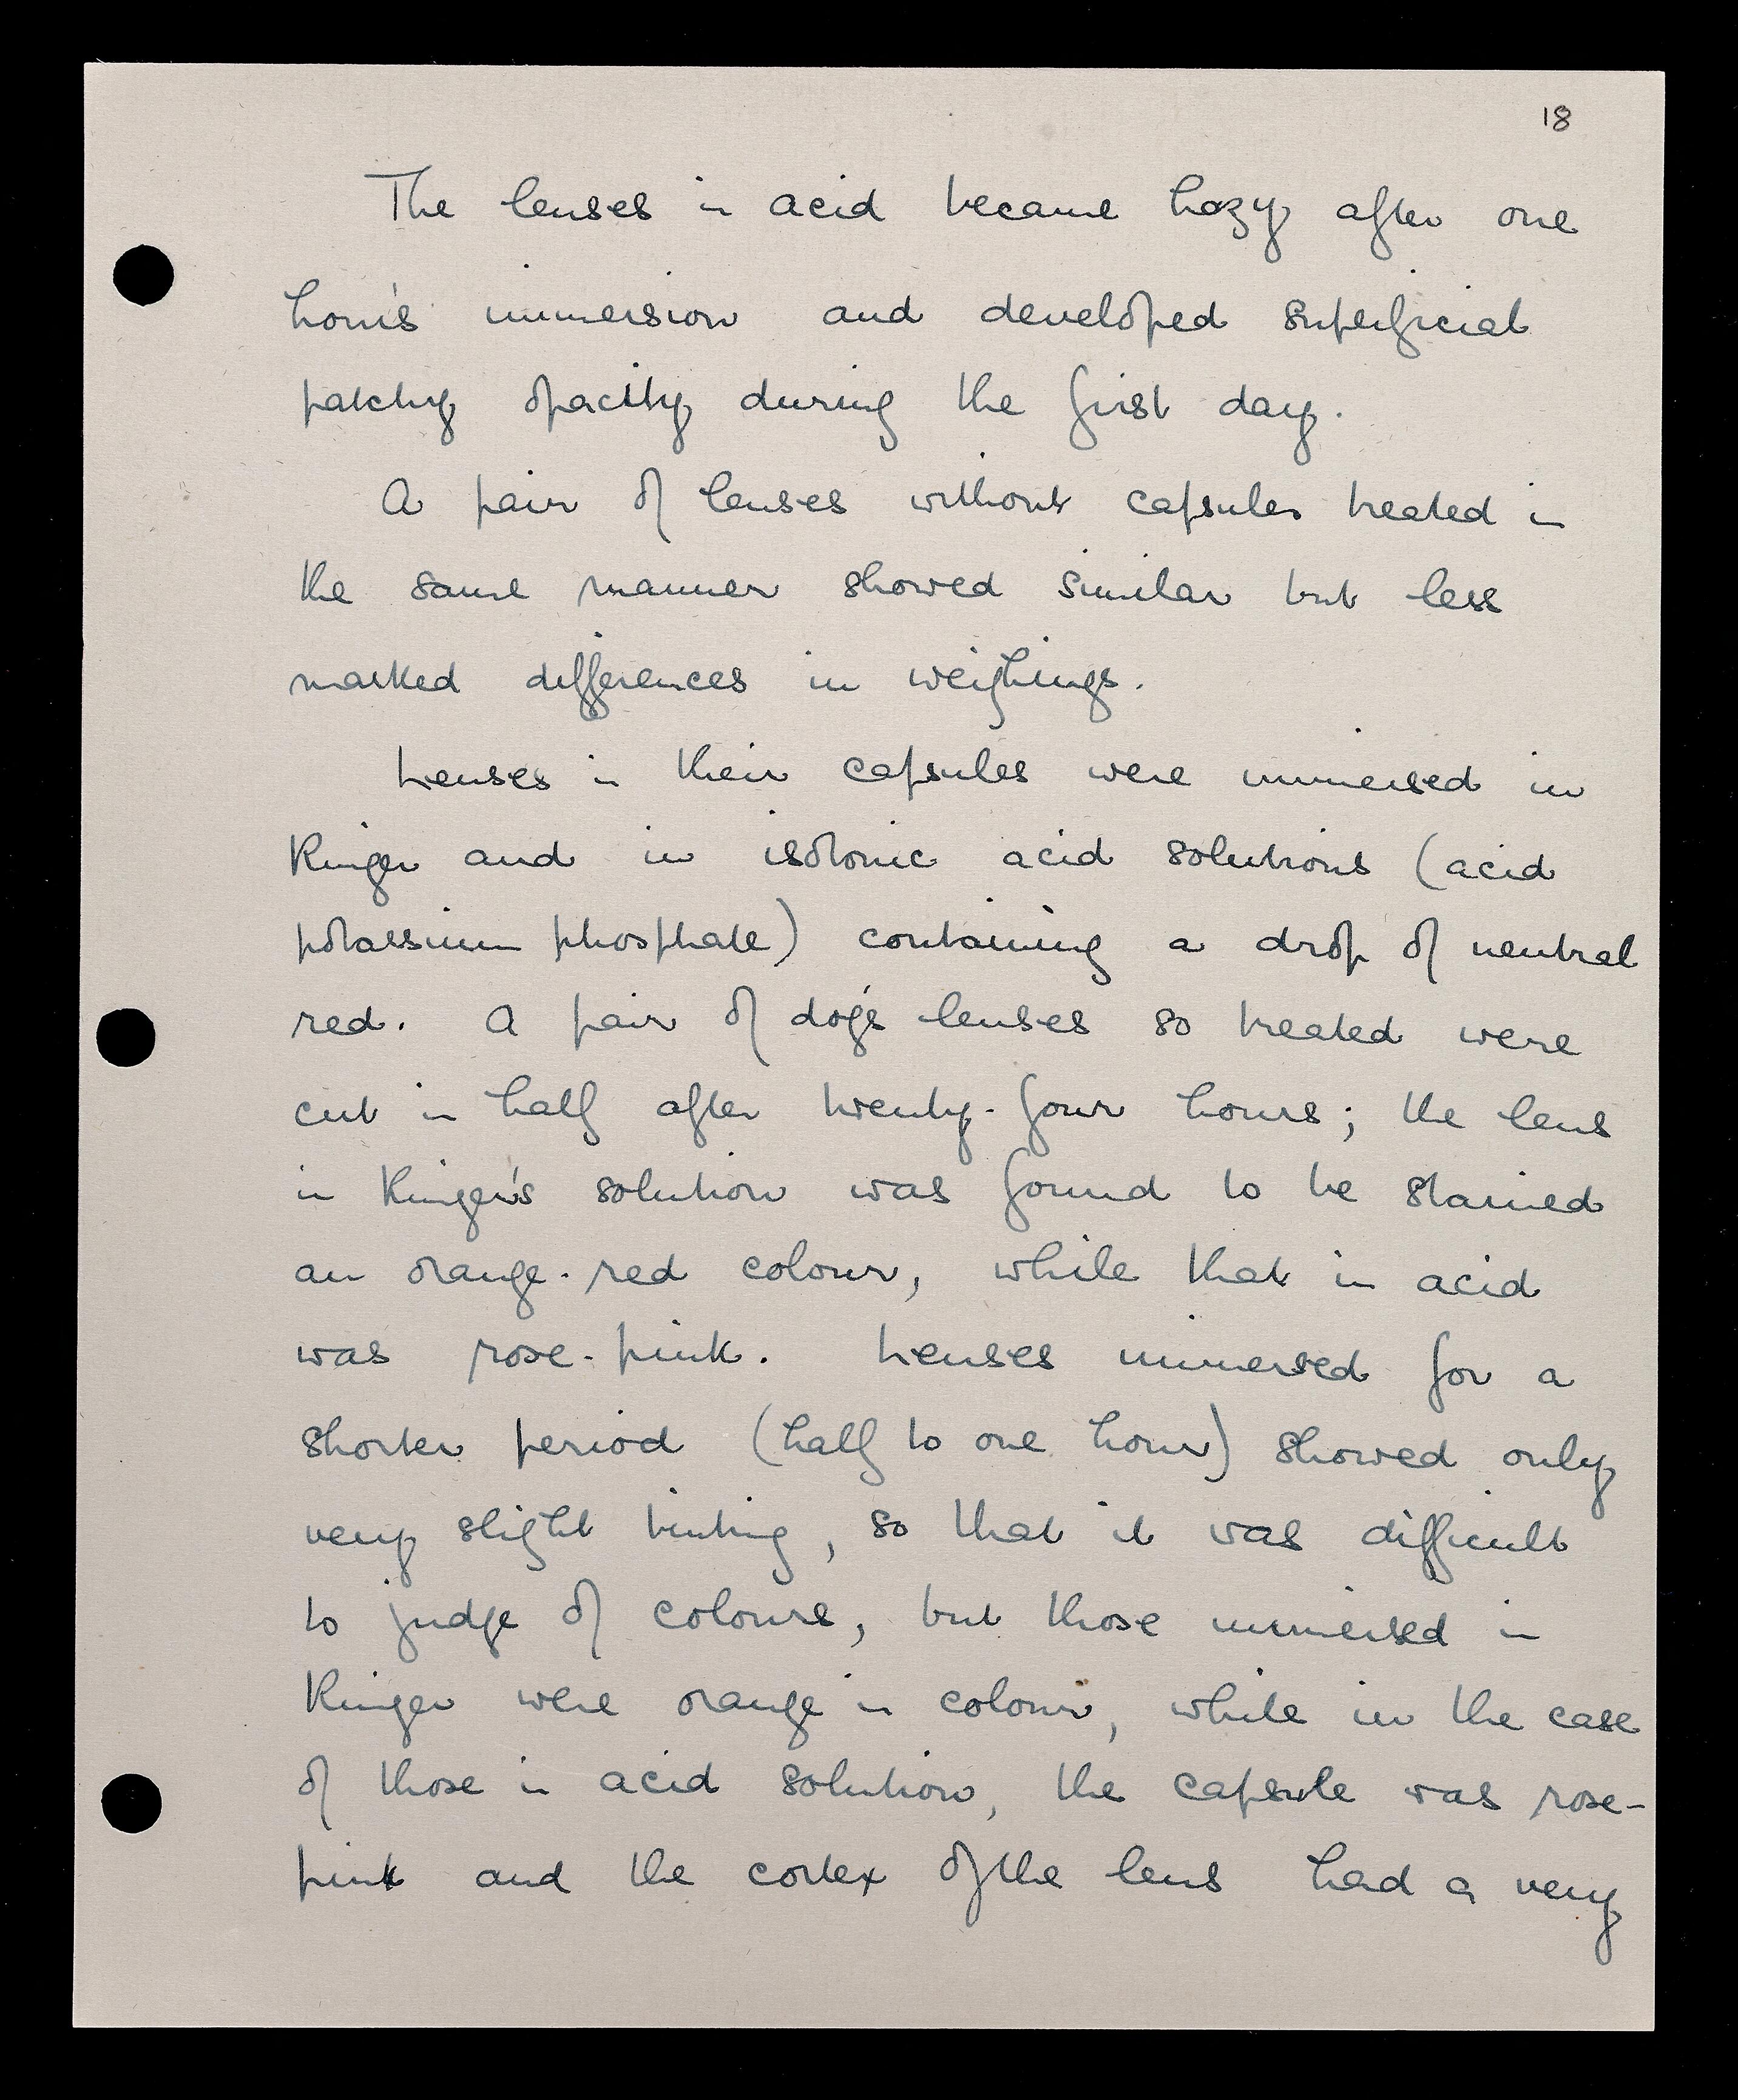 18
The lenses in acid became hazy after one
hour's immersion and developed superficial
patchy opacity during the first day.
A pair of lenses without capsules treated in
the same manner showed similar but less
marked differences in weighings.
Lenses in their capsules were immersed in
Ringer and in isotonic acid solutions (acid
potassium phosphate) containing a drop of neutral
red. A pair of dog's lenses so treated were
cut in half after twenty-four hours; the lens
in Ringer's solution was found to be stained
an orange-red colour, while that in acid
was rose-pink. Lenses immersed for a
shorter period (half to one hour) showed only
very slight tinting, so that it was difficult
to judge of colours, but those immersed in
Ringer were orange in colour, while in the case
of those in acid solution, the capsule was rose-
pink and the cortex of the lens had a very